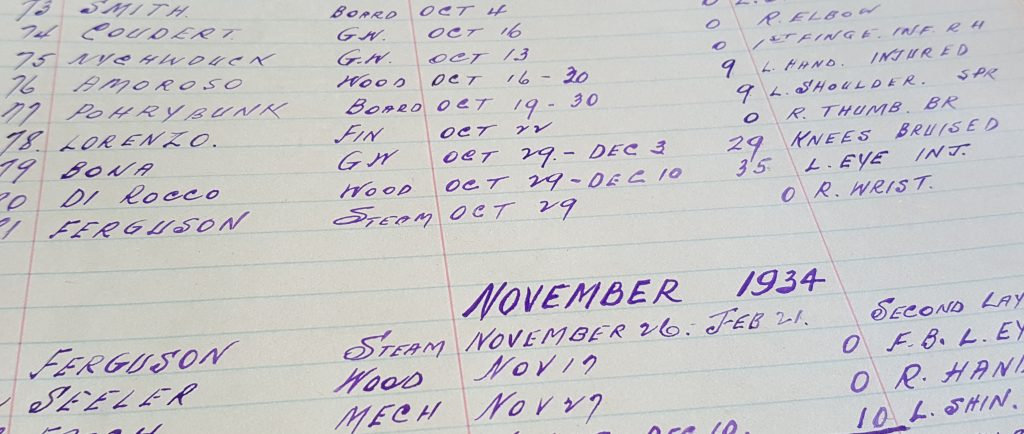 73 SMITH. BOARD OCT 4 0
74 COUDERT G.W. OCT 16 0 R. ELBOW
75 NYCHWDUCK G.W. OCT 13 0 1ST FINGE. INF. R H
76 AMOROSO WOOD OCT 16 - 30 9 L. HAND. INJURED
77 POHRYBUNK BOARD OCT 19 - 30 9 L. SHOULDER. SPR
78. LORENZO. FIN OCT 22 0 R. THUMB. BR
79 BONA GW OCT 29. - DEC 3 29 KNEES BRUISED
80 DI ROCCO WOOD OCT 29 - DEC 10 35 L. EYE INJ.
81 FERGUSON STEAM OCT 29 0 R. WRIST.
NOVEMBER 1934
FERGUSON STEAM NOVEMBER 26. FEB 21. SECOND LAY
SEELER WOOD NOV 17 0 F.B. L. EY
MECH NOV 27 0 R. HAND
DEC 10. 10 L. SHIN.